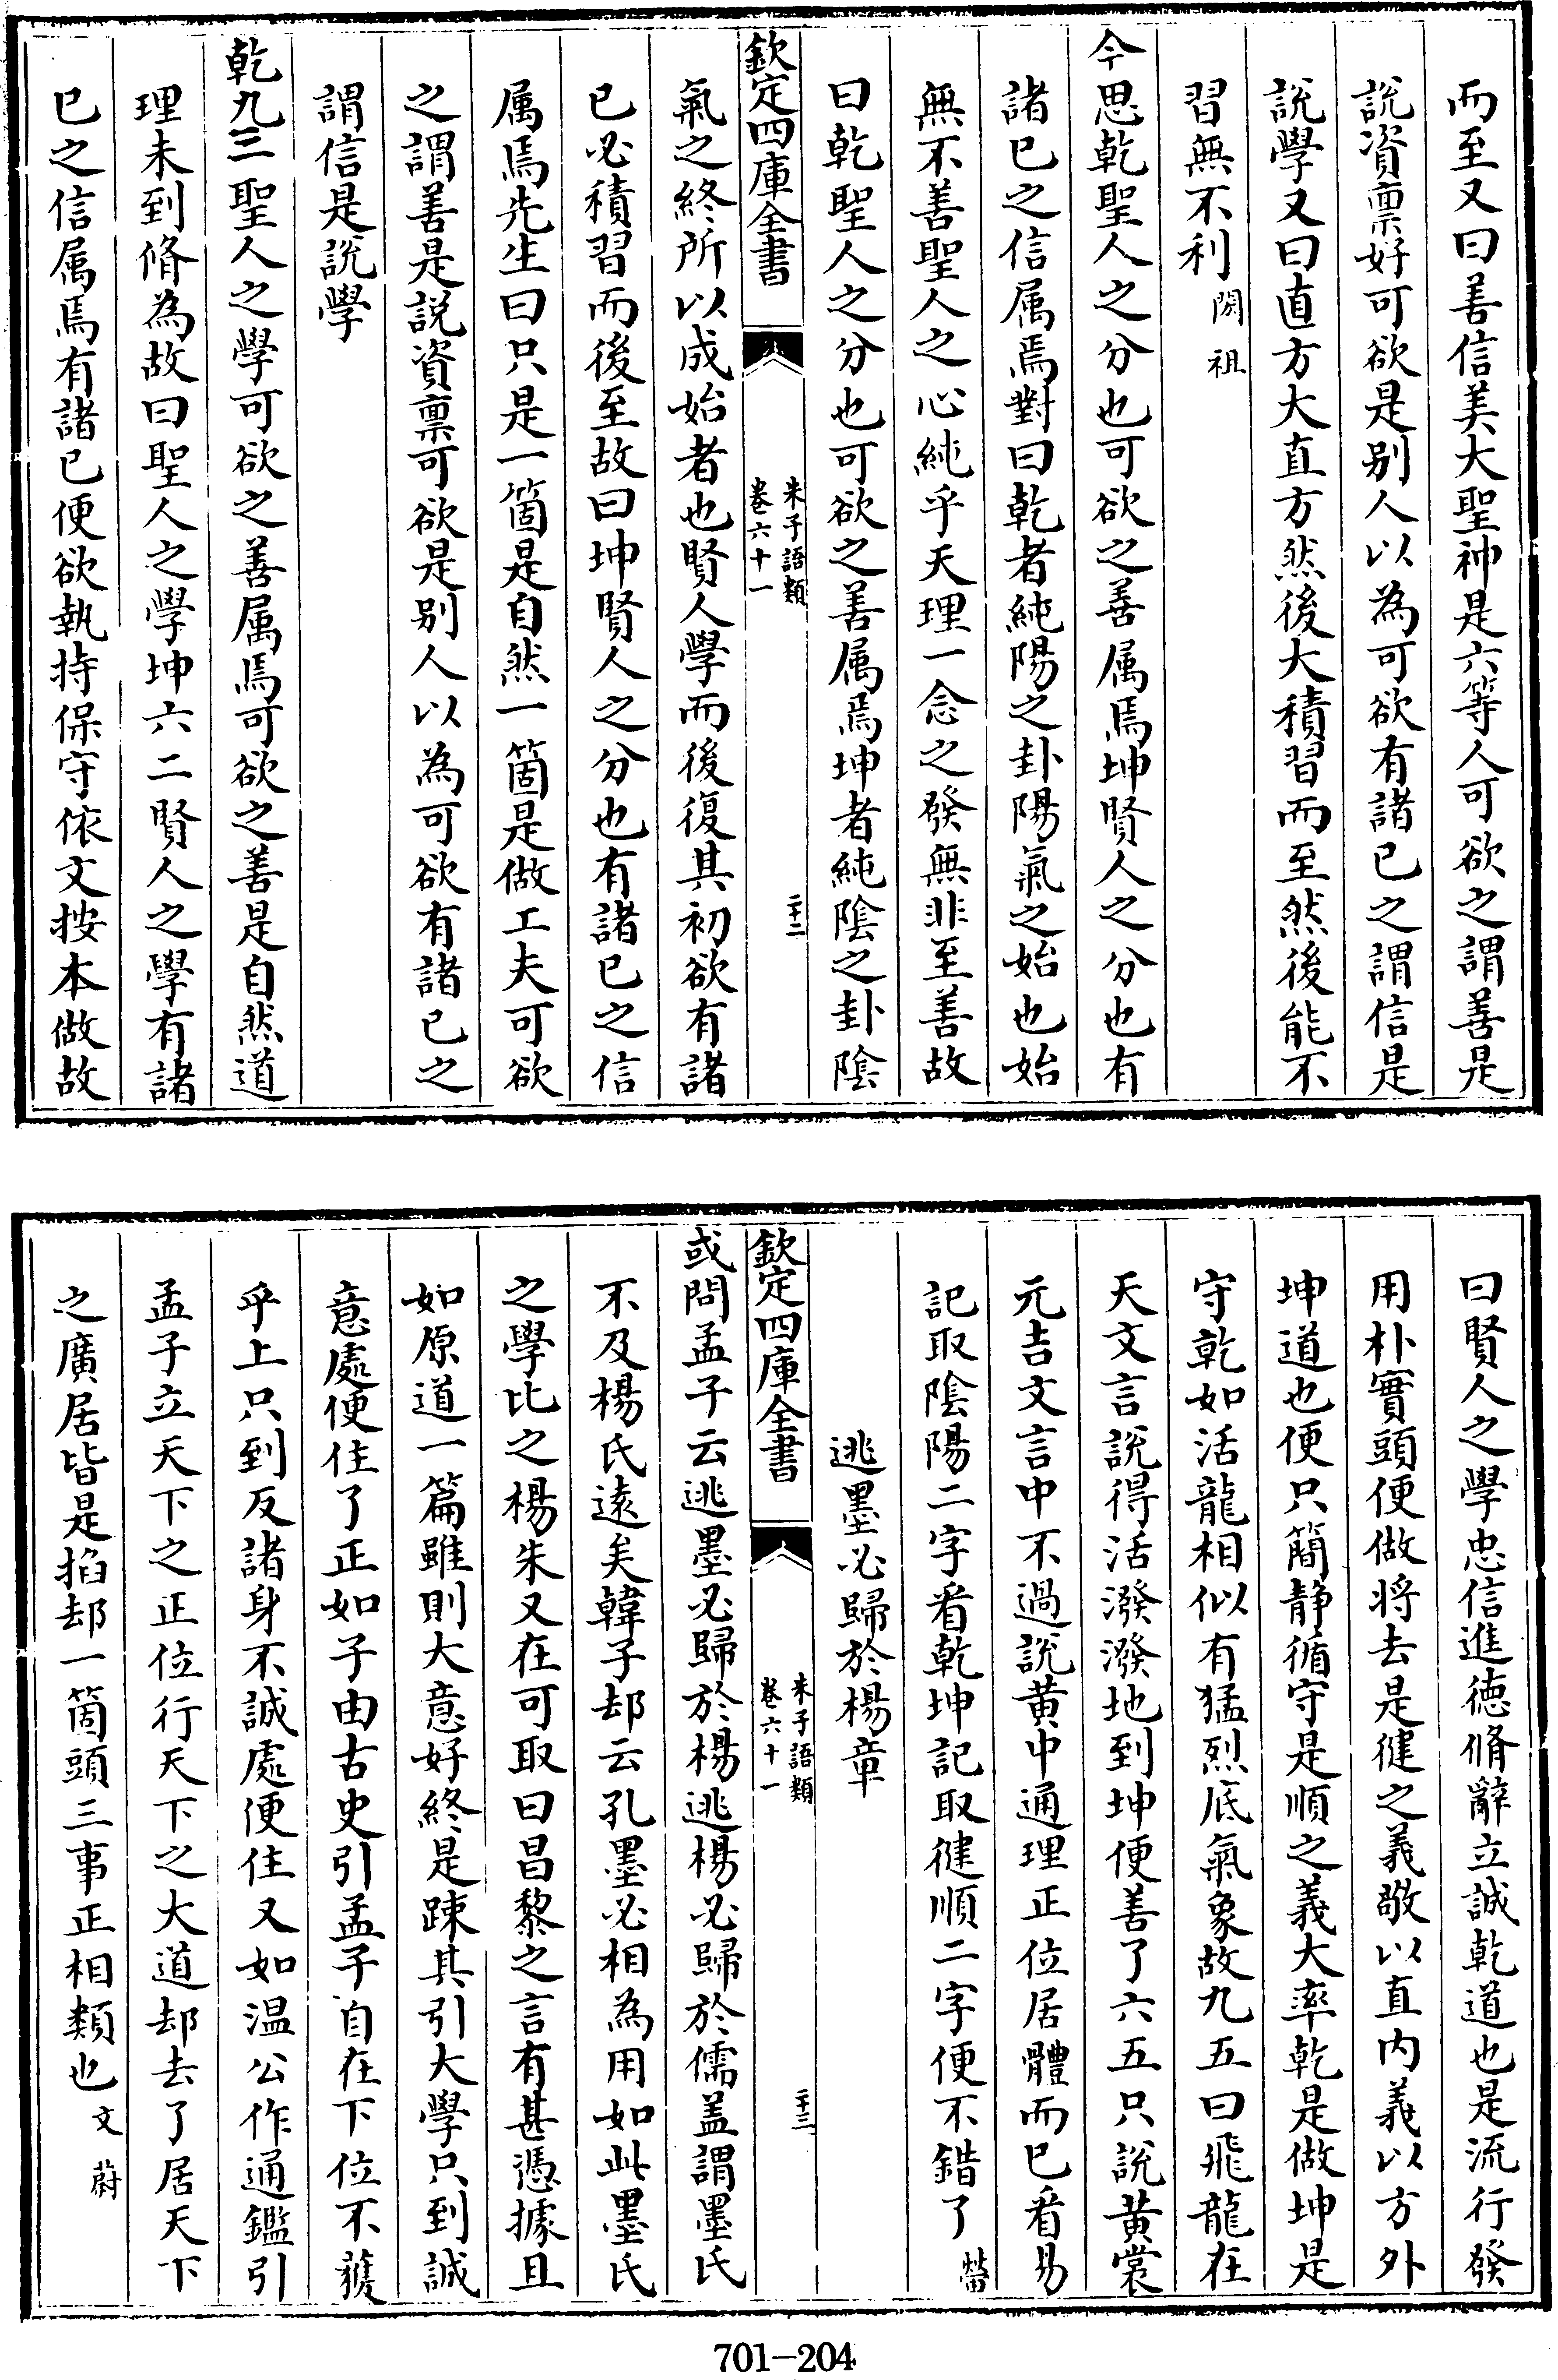 而至又曰善信美大聖神是六等人可欲之謂善是
說資禀好可欲是别人以為可欲有諸已之謂信是
說學又曰直方大直方然後大積習而至然後能不
習無不利閎祖
今思乾聖人之分也可欲之善属焉坤賢人之分也有
諸已之信属焉對曰乾者純陽之卦陽氣之始也始
無不善聖人之心純乎天理一念之發無非至善故
曰乾聖人之分也可欲之善属焉坤者純陰之卦陰
欽定四庫全書
朱子語類
卷六十一
二十二
氣之終所以成始者也賢人學而後復其初欲有諸
已必積習而後至故曰坤賢人之分也有諸已之信
属焉先生曰只是一箇是自然一箇是做工夫可欲
之謂善是説資禀可欲是别人以為可欲有諸已之
謂信是説學
乾九三聖人之學可欲之善属焉可欲之善是自然道
理未到脩為故曰聖人之學坤六二賢人之學有諸
已之信属焉有諸已便欲執持保守依文按本做故
曰賢人之學忠信進德脩辭立誠乾道也是流行發
用朴實頭便做将去是健之義敬以直内義以方外
坤道也便只簡静循守是順之義大率乾是做坤是
守乾如活龍相似有猛烈底氣象故九五曰飛龍在
天文言說得活潑潑地到坤便善了六五只說黄裳
元吉文言中不過說黄中通理正位居體而已看易
記取陰陽二字看乾坤記取健順二字便不錯了㽦
逃墨必歸於楊章
欽定四庫全書
朱子語類
卷六十一
二十三
或問孟子云逃墨必歸於楊逃楊必歸於儒盖謂墨氏
不及楊氏遠矣韓子却云孔墨必相為用如此墨氏
之學比之楊朱又在可取曰昌黎之言有甚憑據且
如原道一篇雖則大意好終是踈其引大學只到誠
意處便住了正如子由古史引孟子自在下位不獲
乎上只到反諸身不誠處便住又如温公作通鑑引
孟子立天下之正位行天下之大道却去了居天下
之廣居皆是掐却一箇頭三事正相類也文蔚
701-204